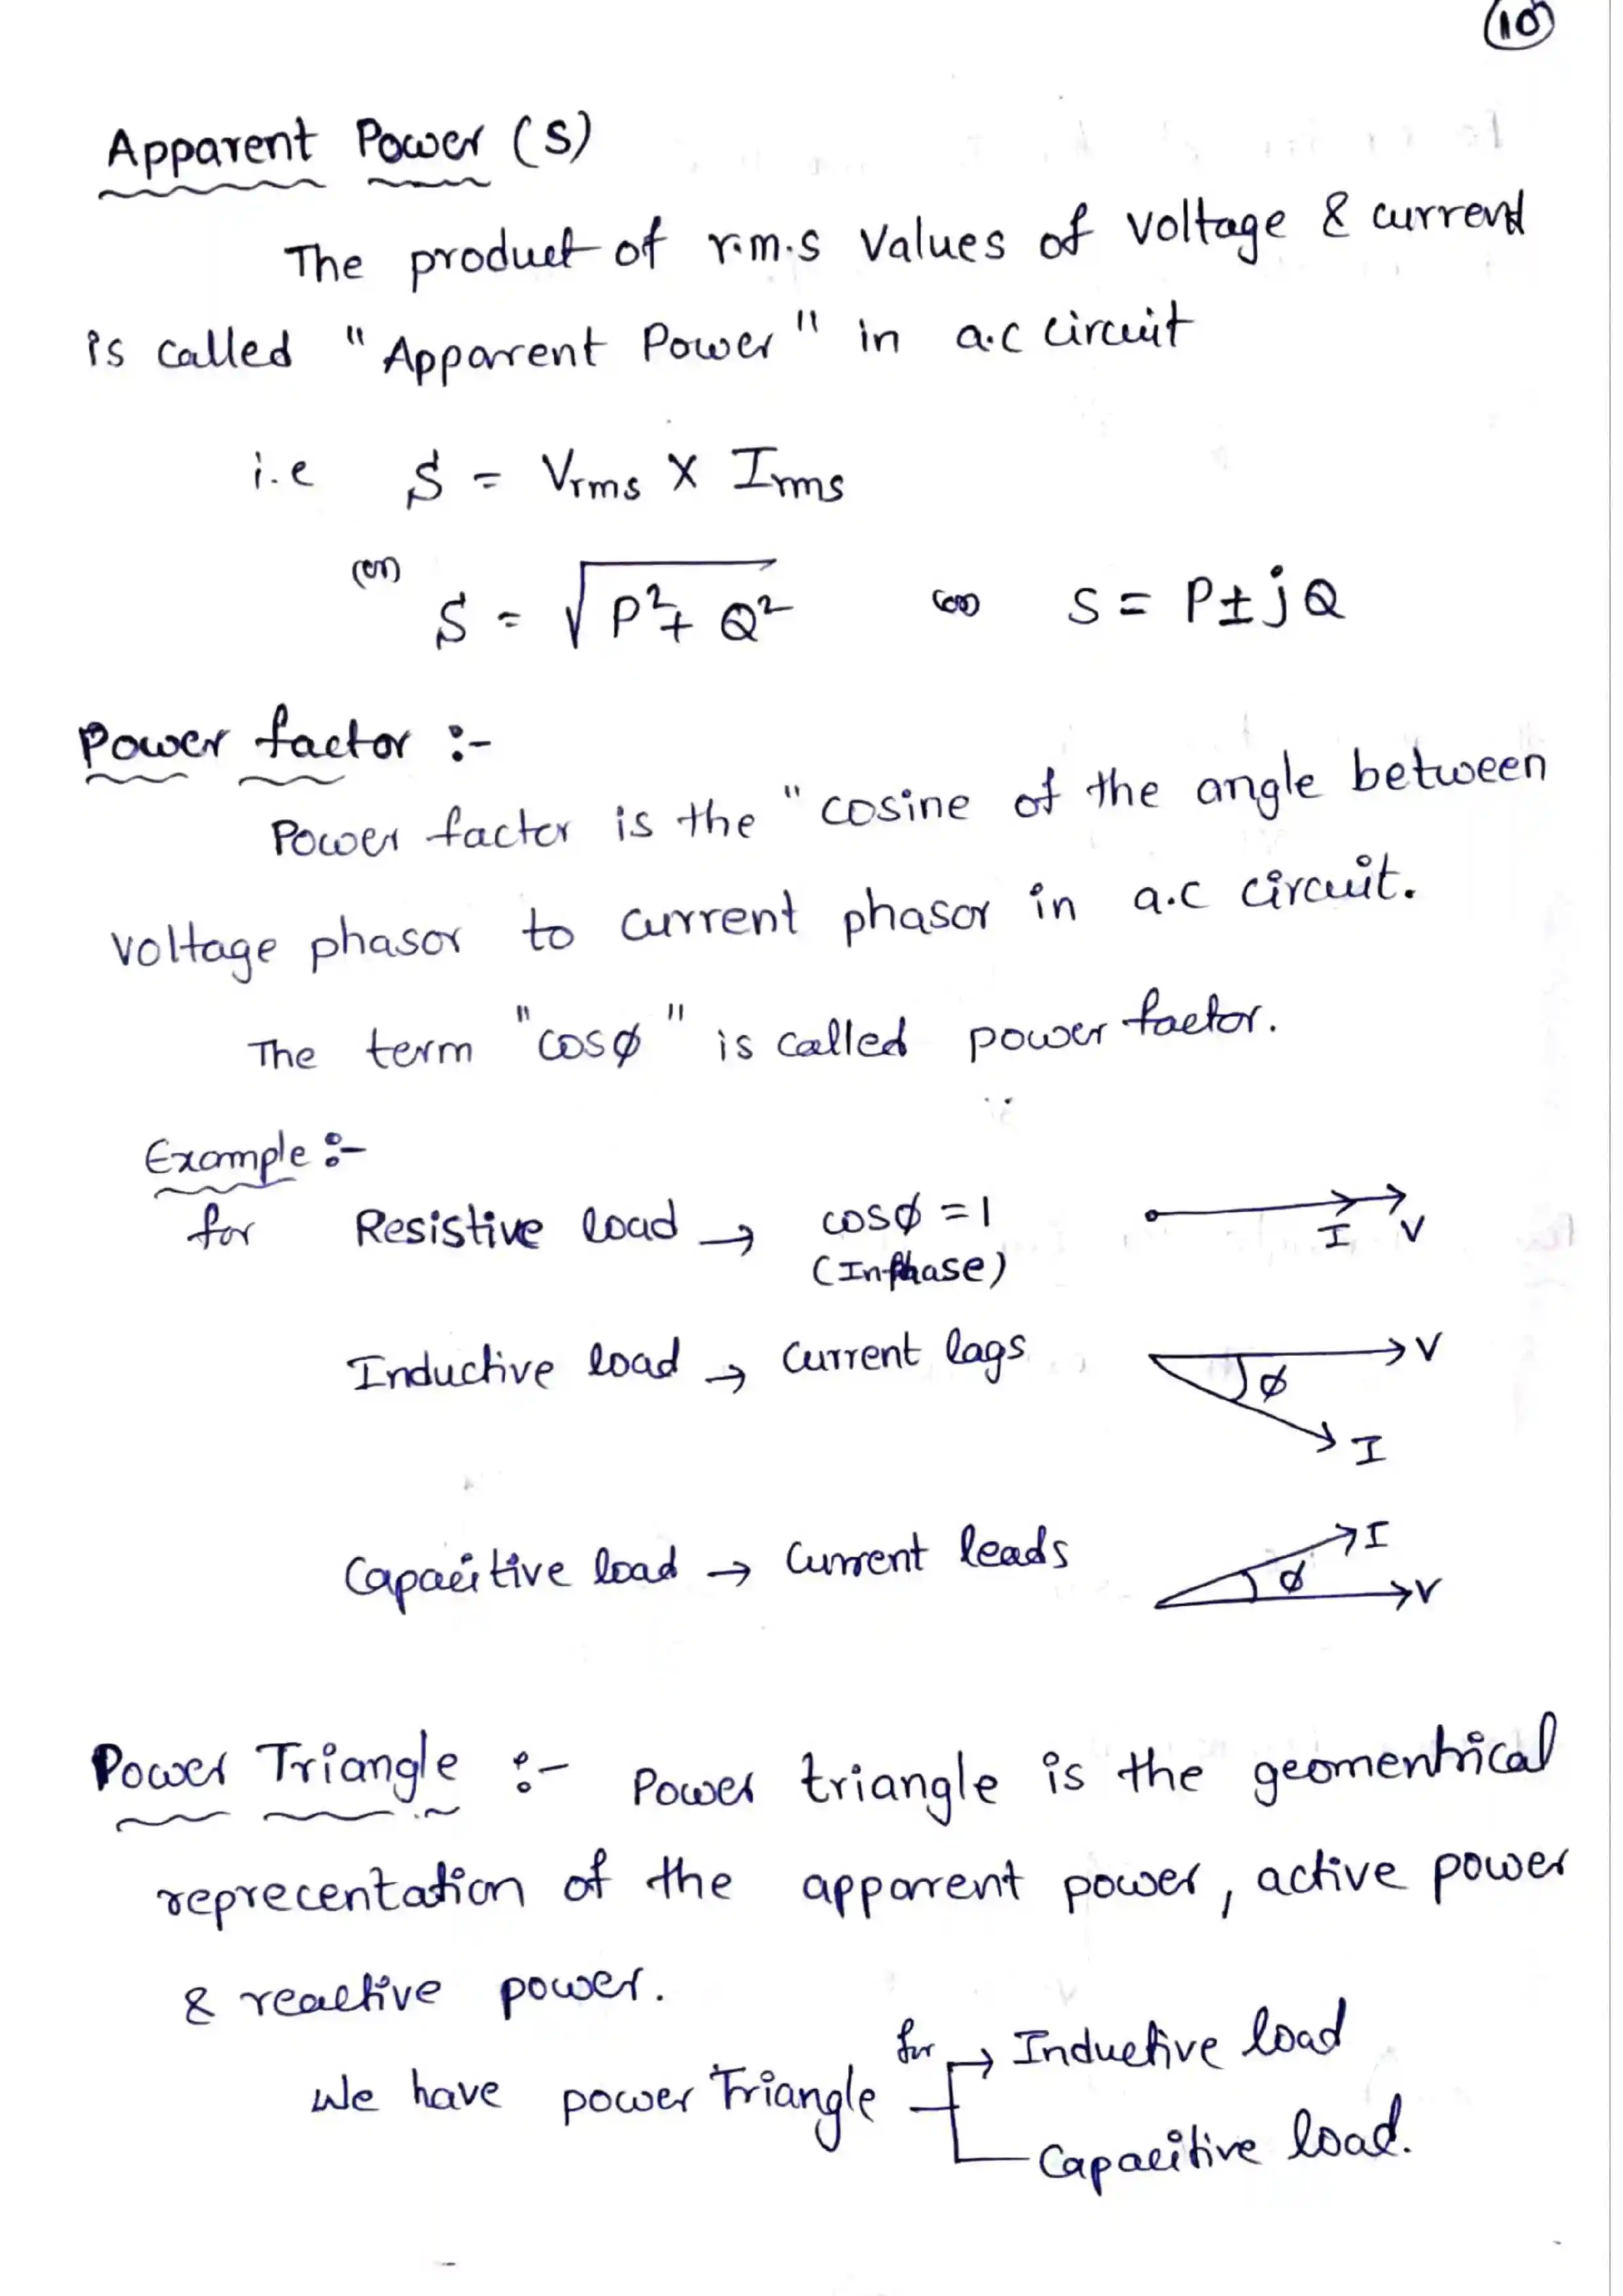 10
Apparent Power (S)
The product of r.m.s Values of voltage & current
is called "Apparent Power" in a.c circuit
i.e S = Vrms X Irms
(or) S = √P²+ Q² (or) S = P±jQ
Power factor :-
Power factor is the "cosine of the angle between
voltage phasor to current phasor in a.c circuit.
The term "cosϕ" is called power factor.
Example :-
for Resistive load → cosϕ = 1 I V
(Inphase)
Inductive load → Current lags V
ϕ
I
Capacitive load → Current leads I
ϕ V
Power Triangle :- Power triangle is the geomentrical
reprecentation of the apparent power, active power
& reactive power.
We have power Triangle for → Inductive load
Capacitive load.